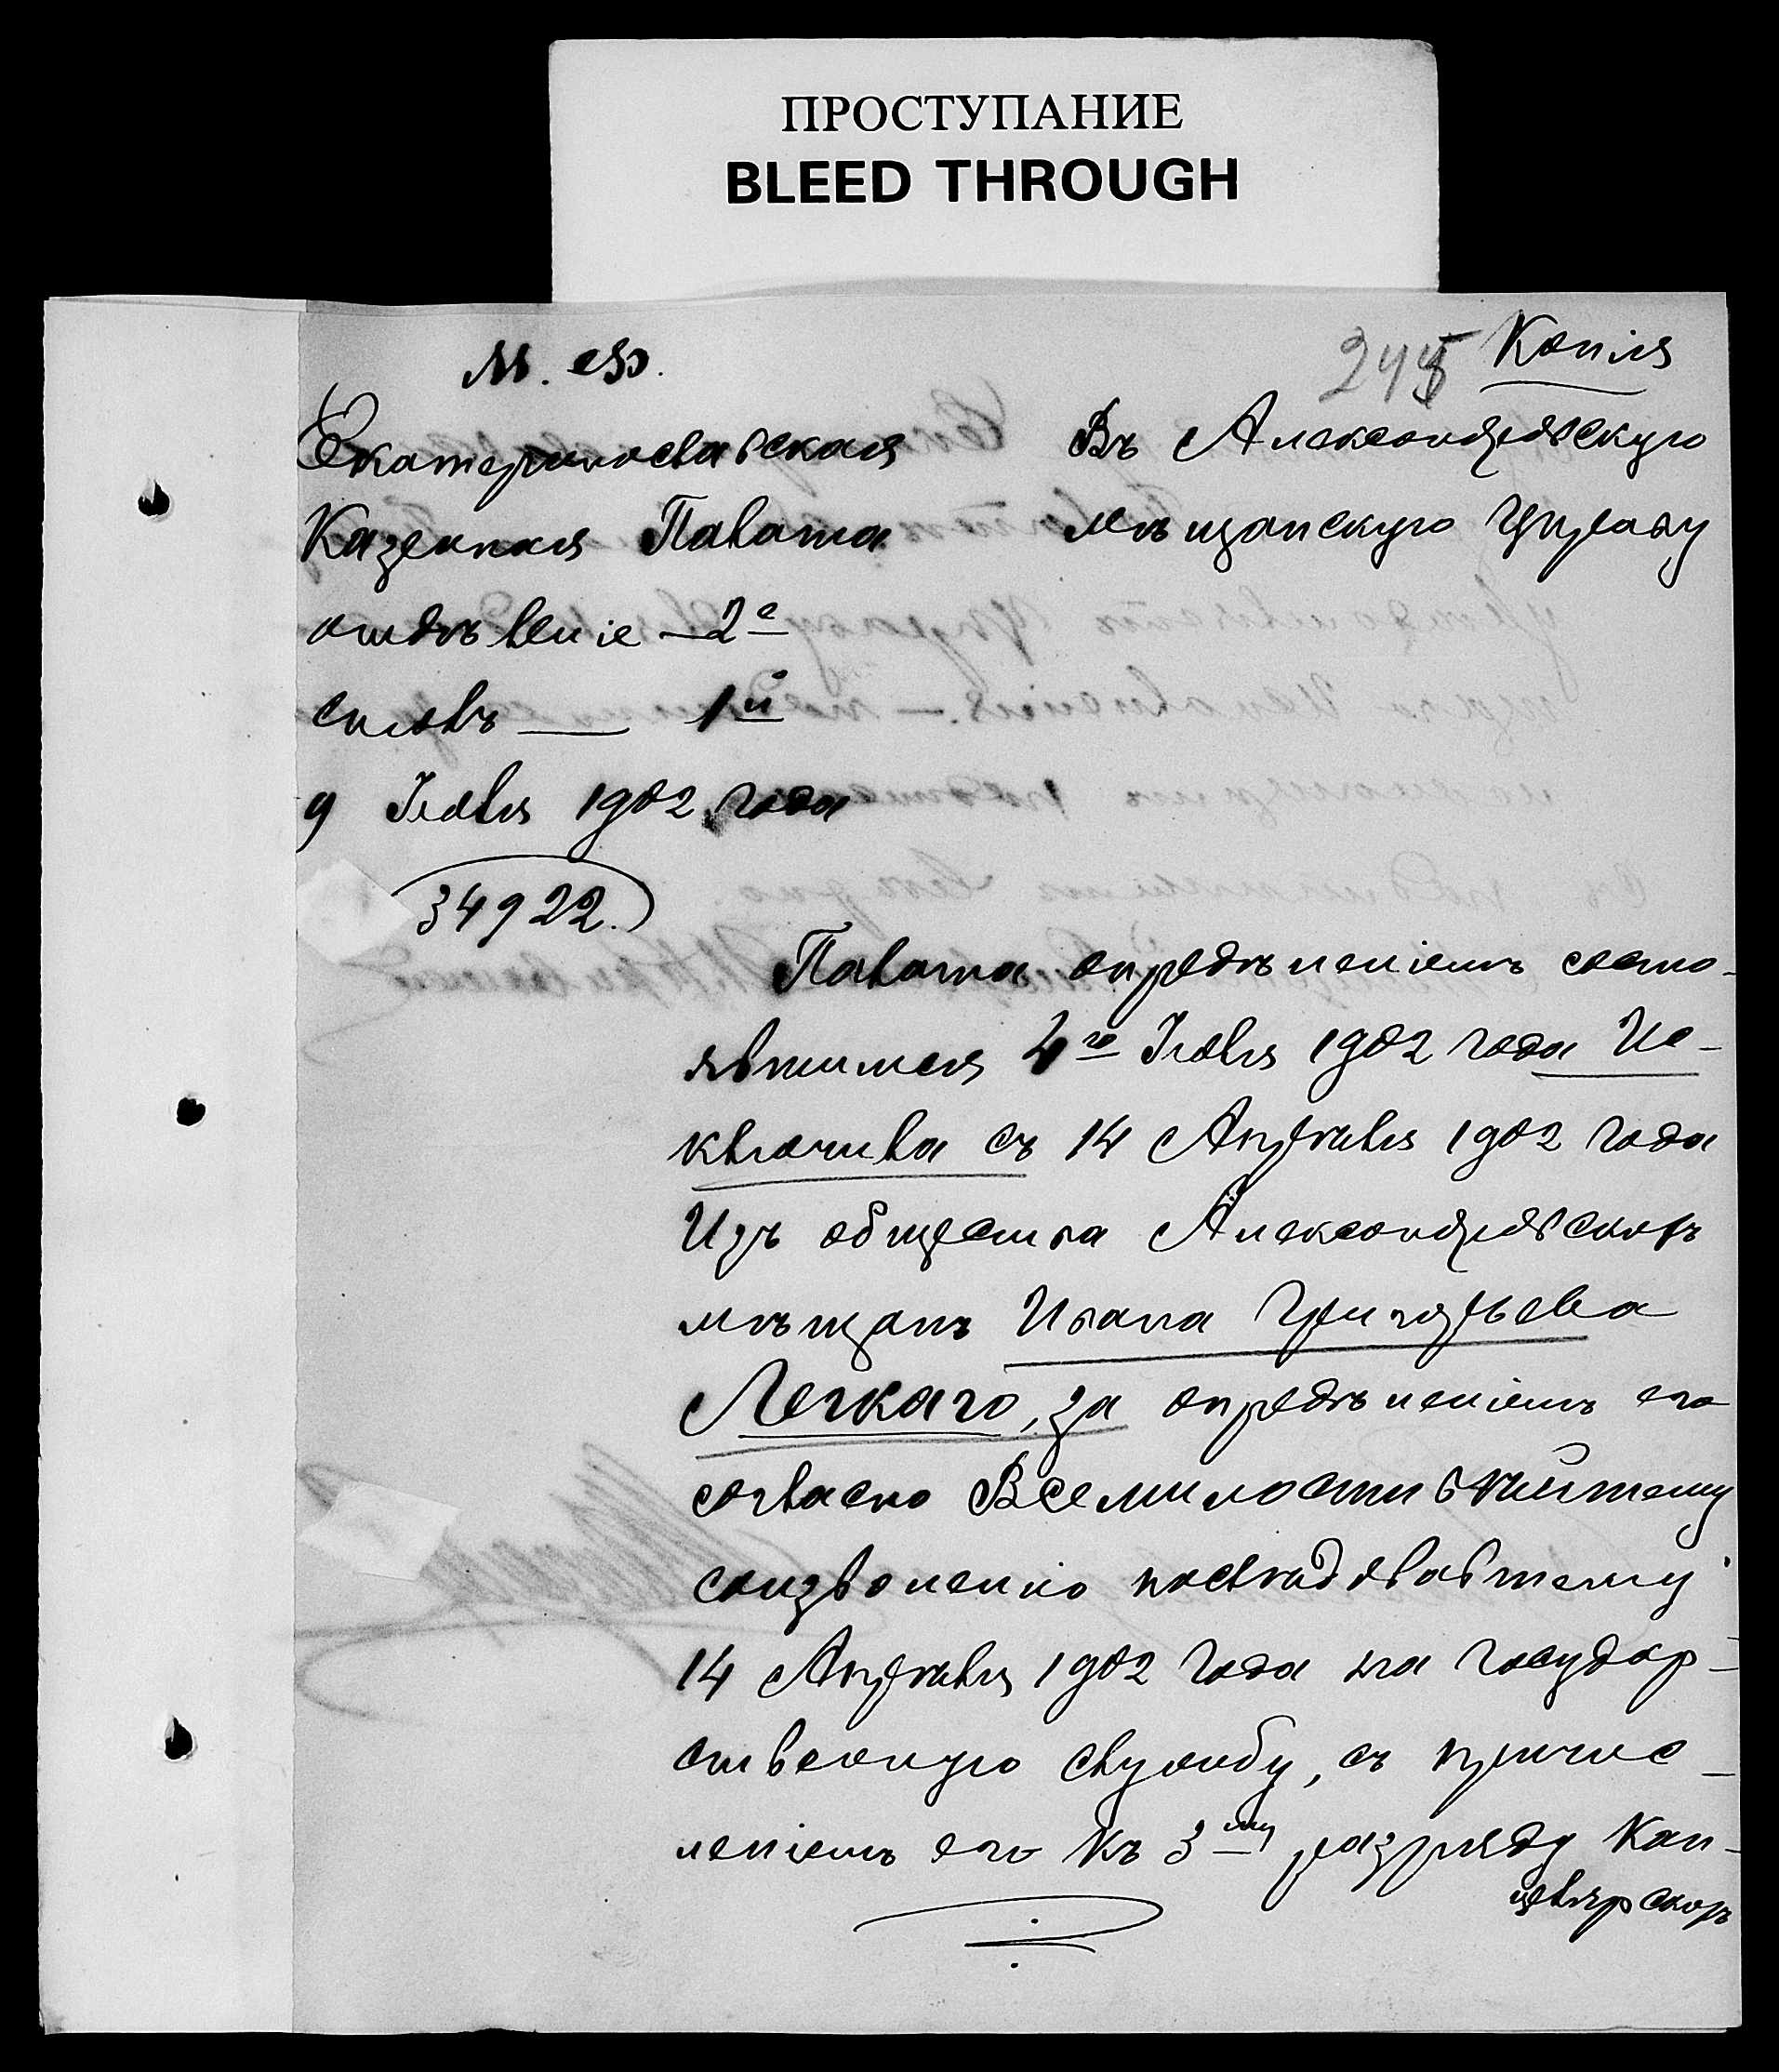 ПРОСТУПАНИЕ
BLEED THROUGH
Копія
М. Ф.
Екатеринославская
Казенная Палата
отдѣленіе — 2е
столъ — 1й
9 Іюля 1902 года
34922.
Въ Александровскую
мѣщанскую Управу
Палата опредѣленіемъ состо-
явшимся 4го Іюля 1902 года Ис-
ключила съ 14 Апрѣля 1902 года
Изъ общества Александровскихъ
мѣщанъ Ивана Григорьева
Легкаго, за опредѣленіемъ его
согласно Всемилостивѣйшему
соизволенію послѣдовавшему
14 Апрѣля 1902 года на государ-
ственную службу, съ причис-
леніемъ его къ 3му разряду Кан-
целярскихъ